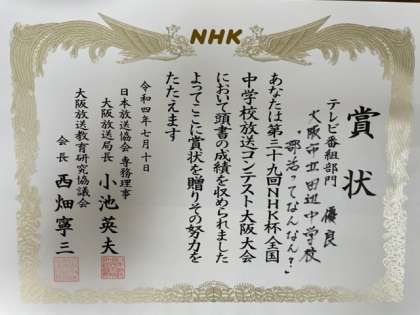 NHK
賞状
テレビ番組部門 優良
大阪市立田辺中学校
"部活ってなんなん?"
あなたは第三十九回NHK杯全国
中学校放送コンテスト大阪大会
において頭書の成績を収められました
よってここに賞状を贈りその努力を
たたえます
令和四年七月十日
日本放送協会 専務理事
大阪放送局長 小池英夫
大阪放送教育研究協議会
会長 西畑寧三